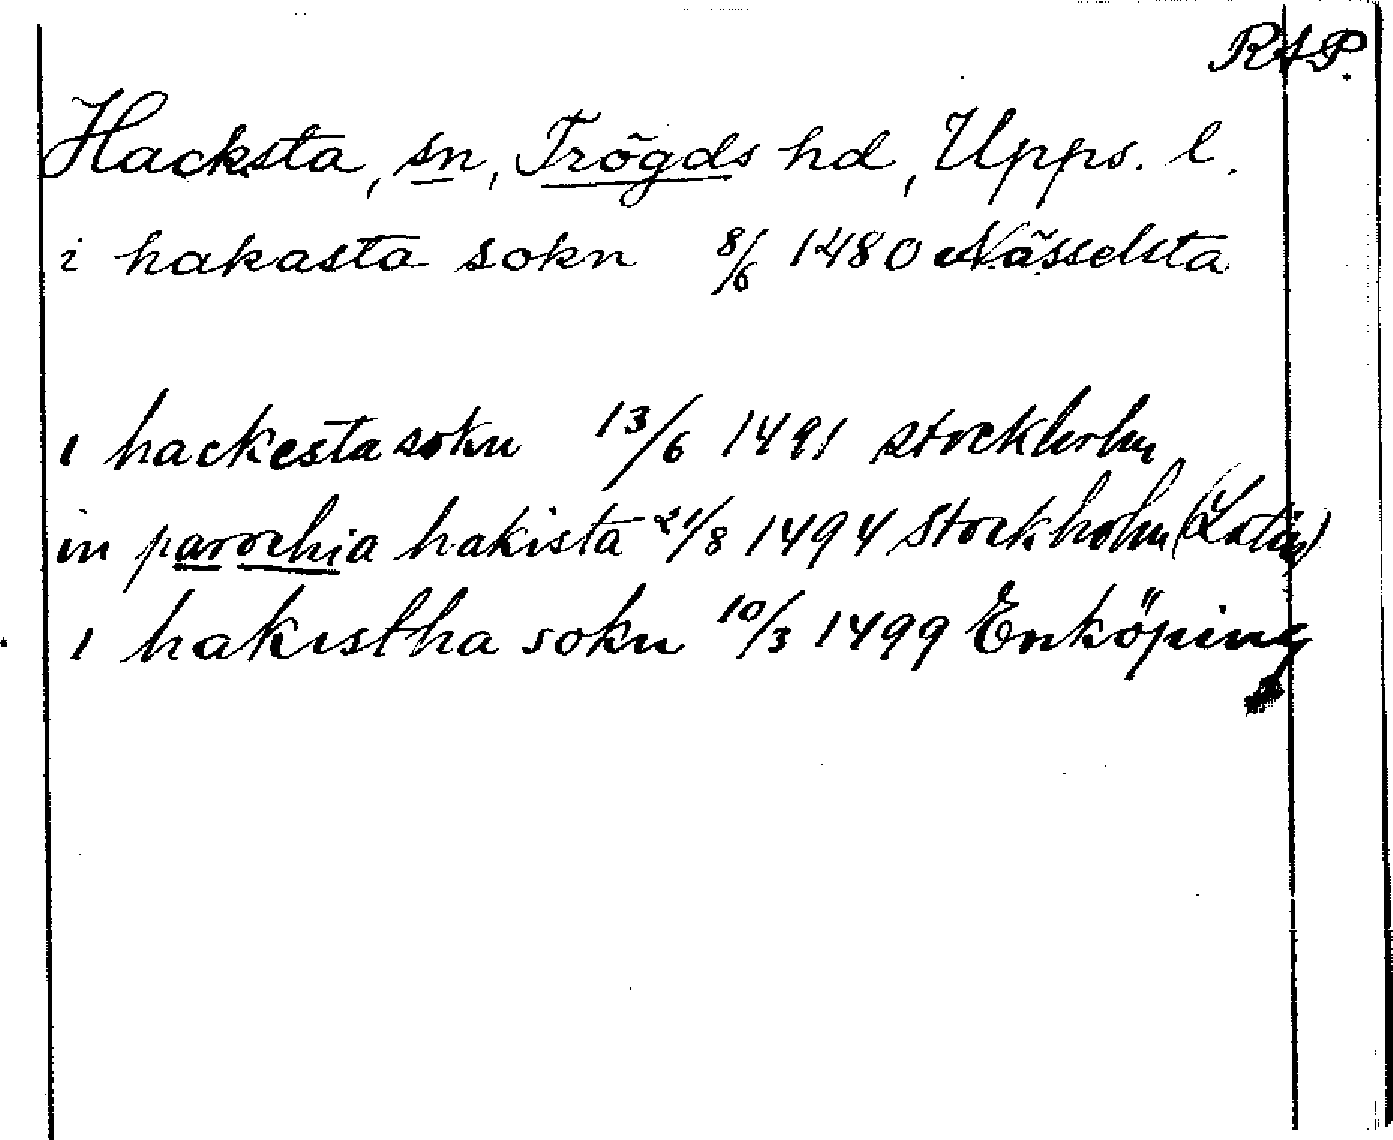 RAP.
Hacksta, sn, Trögds hd, Upps. l.
i hakasta sokn 8/6 1480 Nässelsta
i hackesta sokn 13/6 1491 Stockholm
in parochia hakista 21/8 1494 Stockholm (Latin)
i hakistha sokn 10/3 1499 Enköping